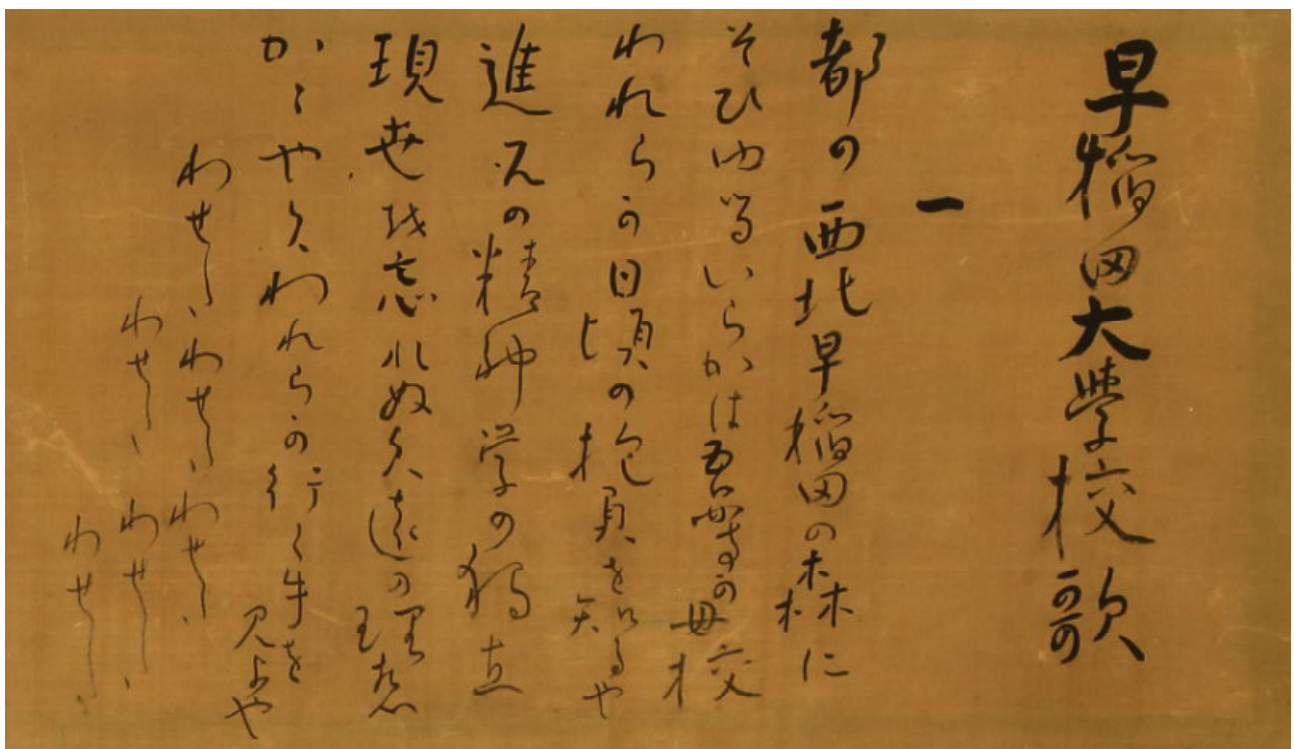 早稲田大學校歌
一
都の西北早稲田の森に
そひゆるいらかは吾等か母校
われらか日頃の抱負を知るや
進取の精神学の独立
現世を忘れぬ久遠の理想
かゝやくわれらか行く手を見よや
わせた〱わせた〱わせた〱
わせた〱わせた〱
わせた〱